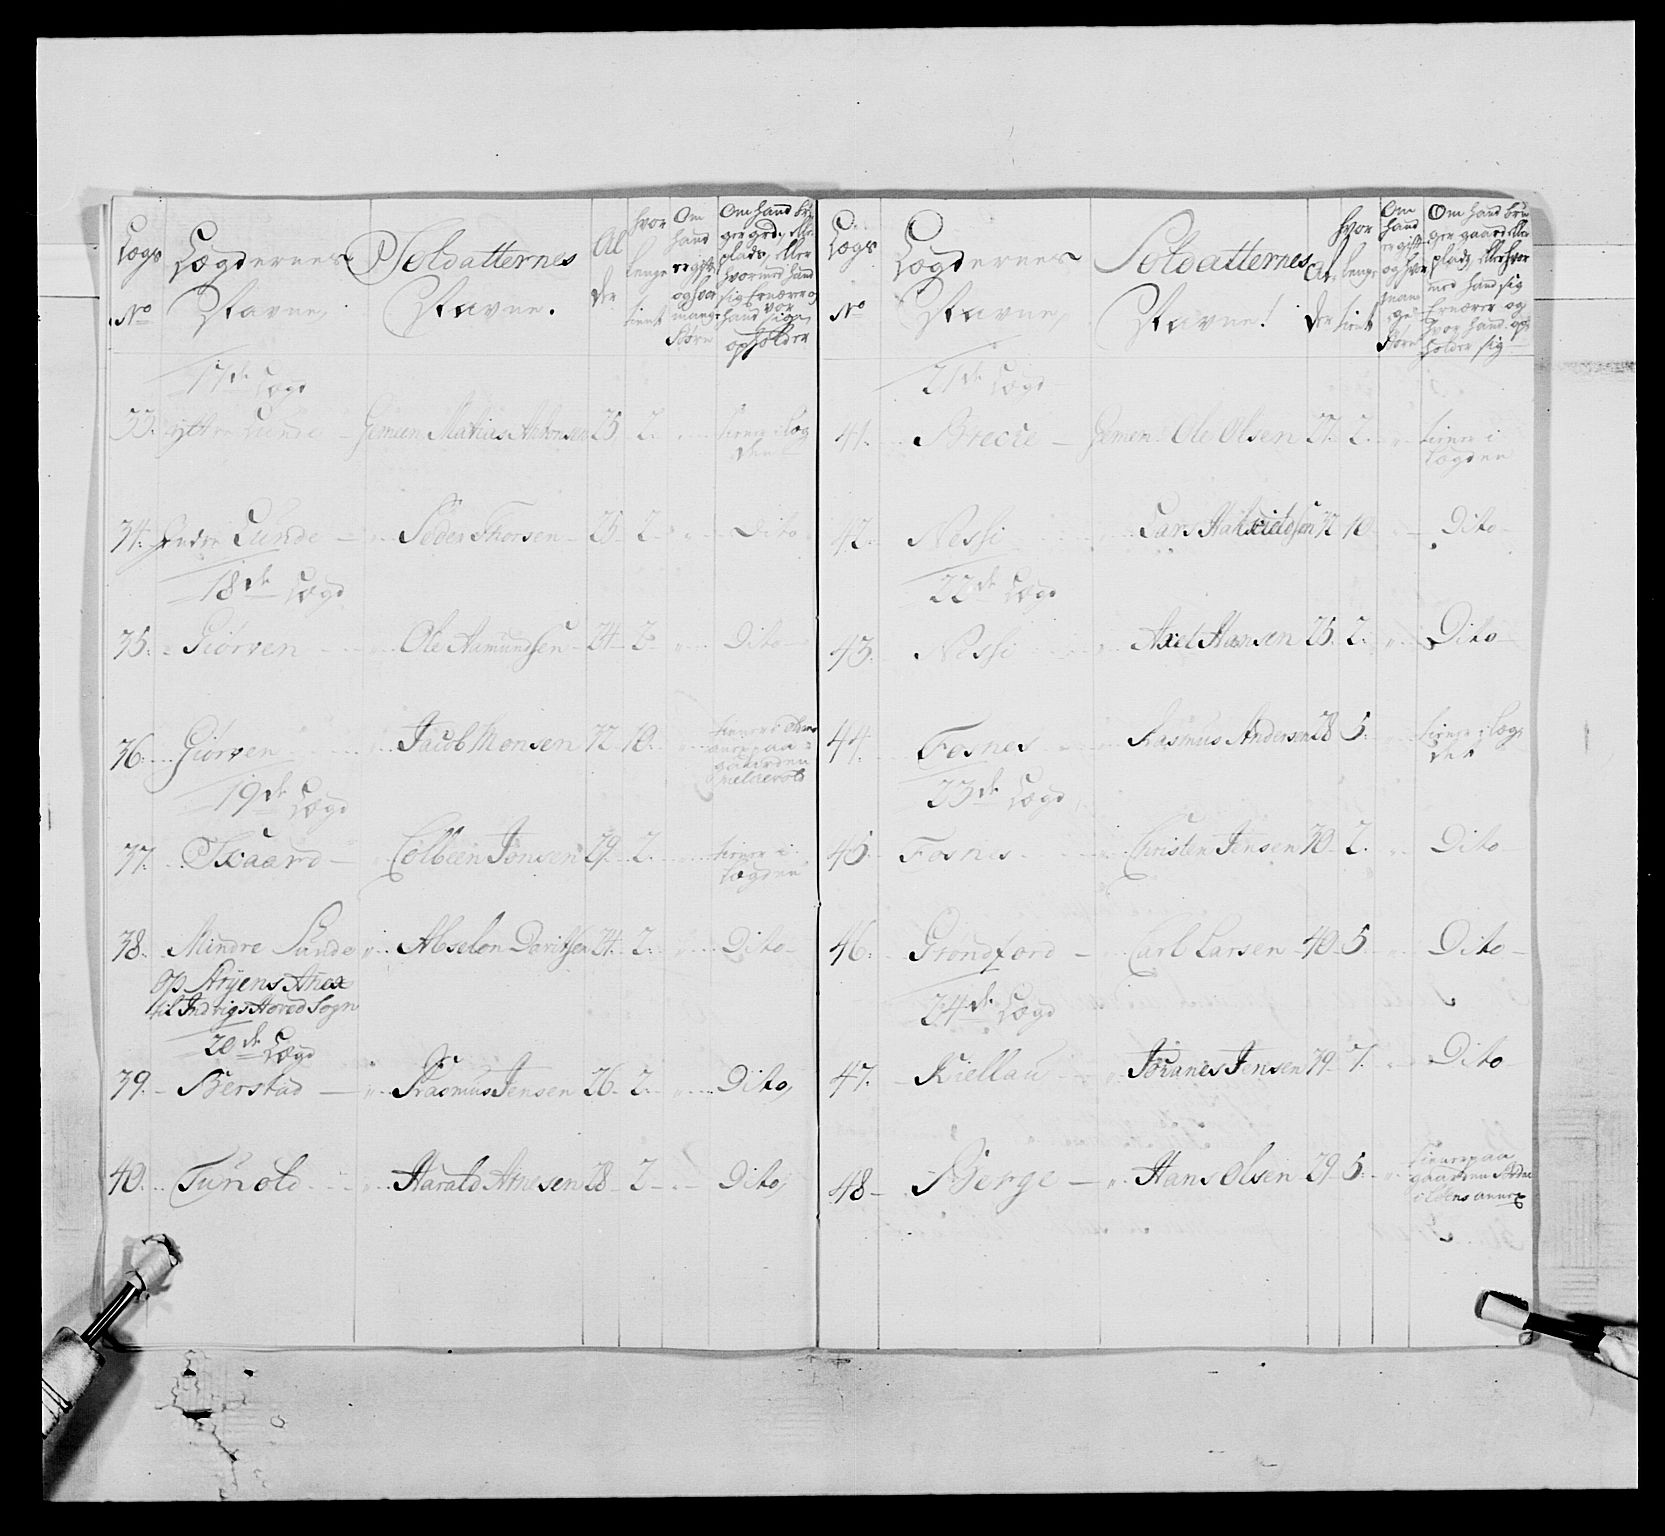 Lægs No
Lægdernes Navne,
Soldatternes Navne.
Al der
hvor lenge tient
Om hand er gift og hvor mange Børn
Om hand brüger grd., eller plads, eller hvormed hand sig Ernærer og hvor hand sig opholder
17de Lægd
33. Ÿttre Lunde - Gemeen Matias 25 2. tiener i Lægden
34. Indre Lunde - Peder Thorsen 25 2 Dito
18de Lægd
35. Giørven Ole Aamundsen 24 2 Dito
36. Giørven Jacob Monsen 32 10. tiener paa gaarden
19de Lægd
37. Skaard - Colbeen Jonsen 29. 2. tiener i Lægden
38. Mindre Sunde Abselon Davidsen 24. 2. Dito
op Stryens Anex
til Indvigs Hoved Sogn
20de Lægd
39. Berstad - Rasmus Jensen 26 2. Dito,
40. Tunold Harald Arnesen 28 2 Dito,
Lægs No
Lægdernes Navne,
Soldatternes Navne!
Al der
hvor lenge tient
Om hand er gift og hvor mange Børn
Om hand brüger gaard eller plads, Eller hvor med hand sig Ernærer og hvor hand opholder sig
21de Lægd
41. - Gemen Ole Olsen 27. 2. tiener i Lægden
42. Nessi Lars 32 10 Dito
22de Lægd
43. Nessi Axel Hansen 25. 2. Dito
44. Fosnes Rasmus Andersen 28 5. tiener i Lægdet
23de Lægd
45. Fosnes Christen Jensen 30 2. Dito
46. Carl Larsen 40 5 Dito
24de Lægd
47. Kiellau Johanes Jensen 39 7. Dito
48 - Berge - Hans Olsen 29 5. tiener paa gaarden